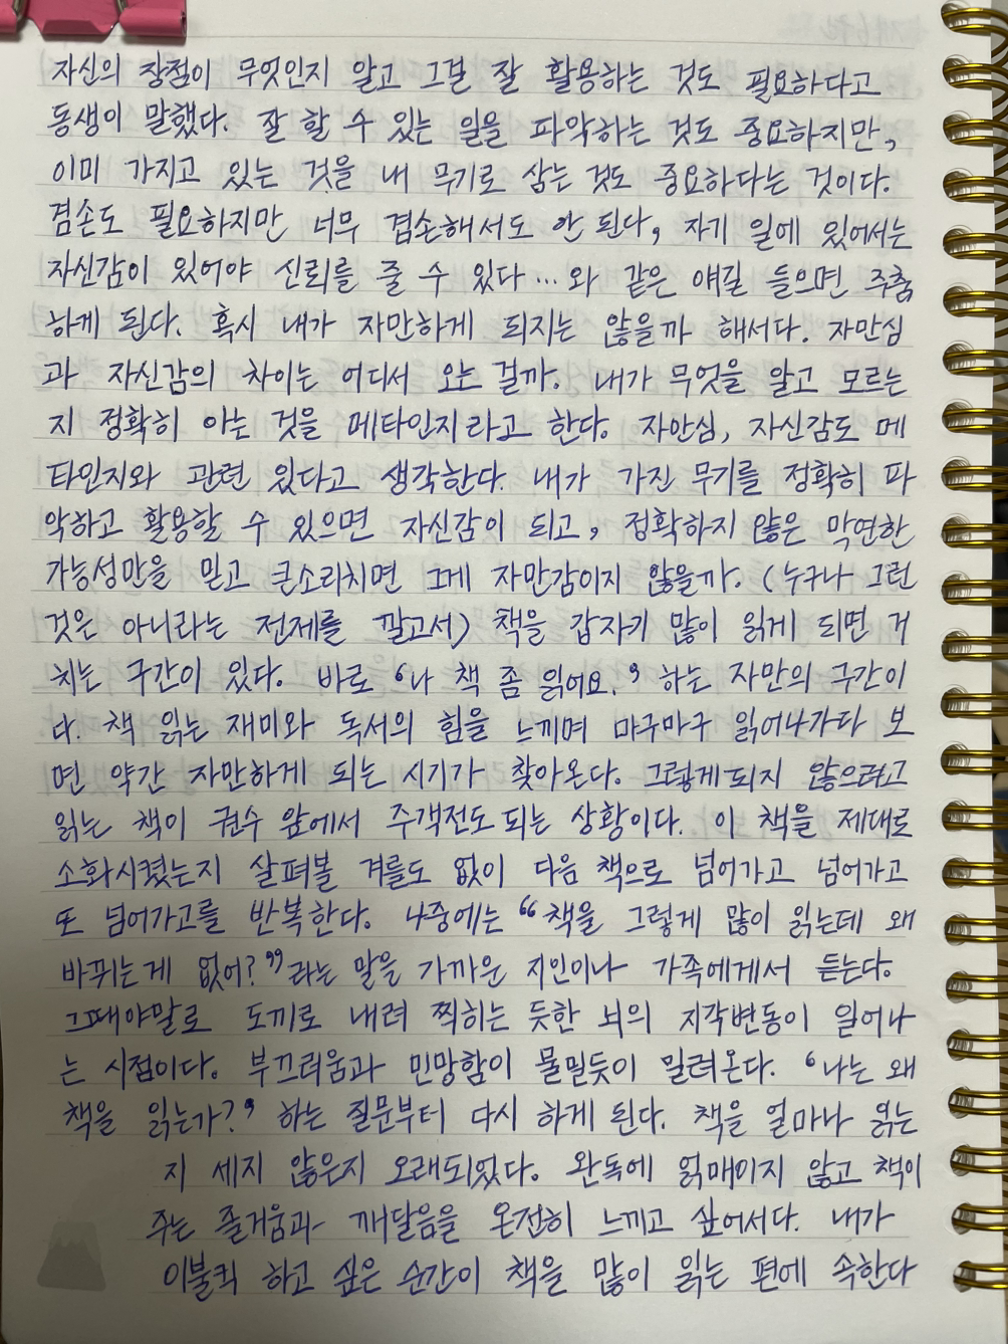 자신의 장점이 무엇인지 알고 그걸 잘 활용하는 것도 필요하다고
동생이 말했다. 잘 할 수 있는 일을 파악하는 것도 중요하지만,
이미 가지고 있는 것을 내 무기로 삼는 것도 중요하다는 것이다.
겸손도 필요하지만 너무 겸손해서도 안 된다, 자기 일에 있어서는
자신감이 있어야 신뢰를 줄 수 있다... 와 같은 얘길 들으면 주춤
하게 된다. 혹시 내가 자만하게 되지는 않을까 해서다. 자만심
과 자신감의 차이는 어디서 오는 걸까. 내가 무엇을 알고 모르는
지 정확히 아는 것을 메타인지라고 한다. 자만심, 자신감도 메
타인지와 관련 있다고 생각한다. 내가 가진 무기를 정확히 파
악하고 활용할 수 있으면 자신감이 되고, 정확하지 않은 막연한
가능성만을 믿고 큰소리치면 그게 자만감이지 않을까. (누구나 그런
것은 아니라는 전제를 깔고서) 책을 갑자기 많이 읽게 되면 거
치는 구간이 있다. 바로 '나 책 좀 읽어요.' 하는 자만의 구간이
다. 책 읽는 재미와 독서의 힘을 느끼며 마구마구 읽어나가다 보
면 약간 자만하게 되는 시기가 찾아온다. 그렇게 되지 않으려고
읽는 책이 권수 앞에서 주객전도 되는 상황이다. 이 책을 제대로
소화시켰는지 살펴볼 겨를도 없이 다음 책으로 넘어가고 넘어가고
또 넘어가고를 반복한다. 나중에는 "책을 그렇게 많이 읽는데 왜
바뀌는게 없어?"라는 말을 가까운 지인이나 가족에게서 듣는다.
그때야말로 도끼로 내려 찍히는 듯한 뇌의 지각변동이 일어나
는 시점이다. 부끄러움과 민망함이 물밀듯이 밀려온다. '나는 왜
책을 읽는가?' 하는 질문부터 다시 하게 된다. 책을 얼마나 읽는
지 세지 않은지 오래되었다. 완독에 얽매이지 않고 책이
주는 즐거움과 깨달음을 온전히 느끼고 싶어서다. 내가
이불킥 하고 싶은 순간이 책을 많이 읽는 편에 속한다